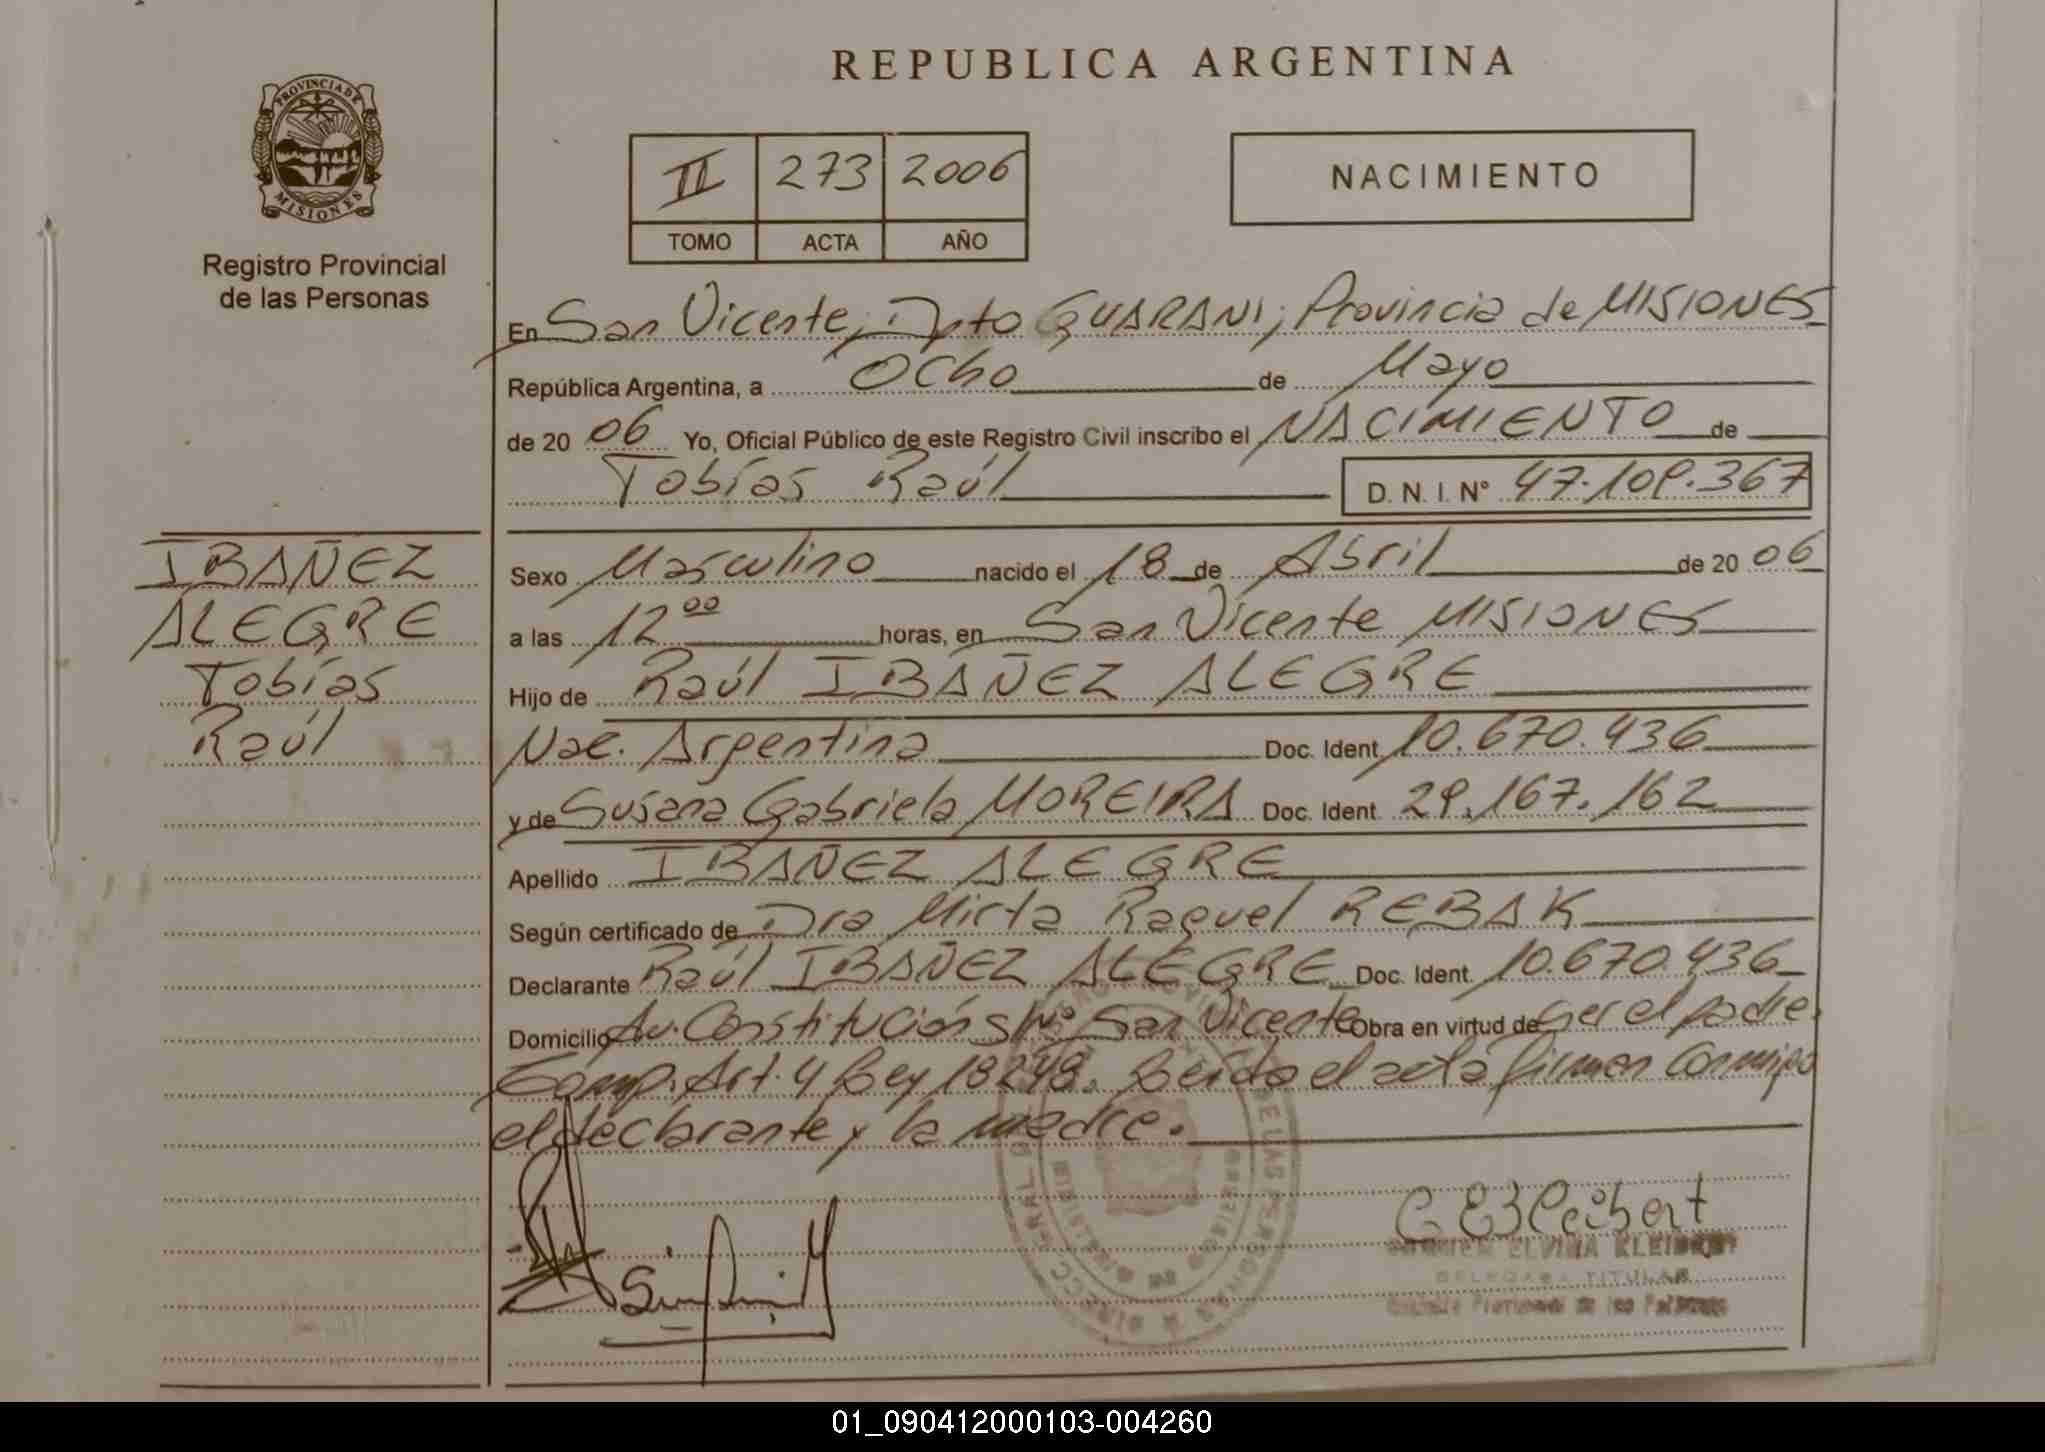 REPUBLICA ARGENTINA
PROVINCIA DE
MISIONES
Registro Provincial
de las Personas
II 273 2006
TOMO ACTA AÑO
NACIMIENTO
En San Vicente, Dpto GUARANI, Provincia de MISIONES
República Argentina, a Ocho de Mayo
de 20 06 Yo, Oficial Público de este Registro Civil inscribo el NACIMIENTO de
Tobías Raúl D. N. I. Nº 47.109.367
IBAÑEZ
ALEGRE
Tobías
Raúl
Sexo Masculino nacido el 18 de Abril de 20 06
a las 12 00 horas, en San Vicente MISIONES
Hijo de Raúl IBAÑEZ ALEGRE
Nac. Argentina Doc. Ident. 10.670.436
y de Susana Gabriela MOREIRA Doc. Ident. 29.167.162
Apellido IBAÑEZ ALEGRE
Según certificado de Dra Mirta Raquel REBAK
Declarante Raúl IBAÑEZ ALEGRE Doc. Ident. 10.670.436
Domicilio Av. Constitución s/nº San Vicente Obra en virtud de ser el padre.
Comp. Art. 4 Ley 18248. Leida el acta firman conmigo
el declarante y la madre.
CARMEN ELVIRA KLEIBERT
DELEGADA TITULAR
01_090412000103-004260